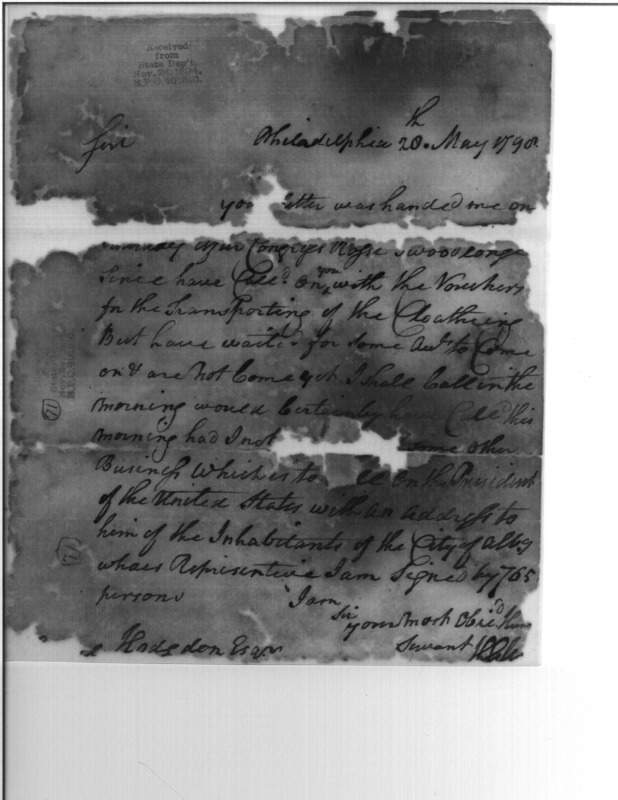 Received
from
State Dep't.
Nov. 1894.
Sir Philadelphia 28th. May 1798
your letter was handed me on
after Congress Rose & would long
Since have Call.d on you with the Vouchers
for the Transporting of the Cloatheing
But have waited for Some to Come
on & are Not Come yet I Shall Call in the
morning would Certainly have Call.d this
morning had I not Some other
Business Which is to on the President
of the United States with an address to
him of the Inhabitants of the City of Alby
whoes Representive I am Signed by 765
persons I am
Sir
your most Obed Hum
Hodsdon Esqr Servant